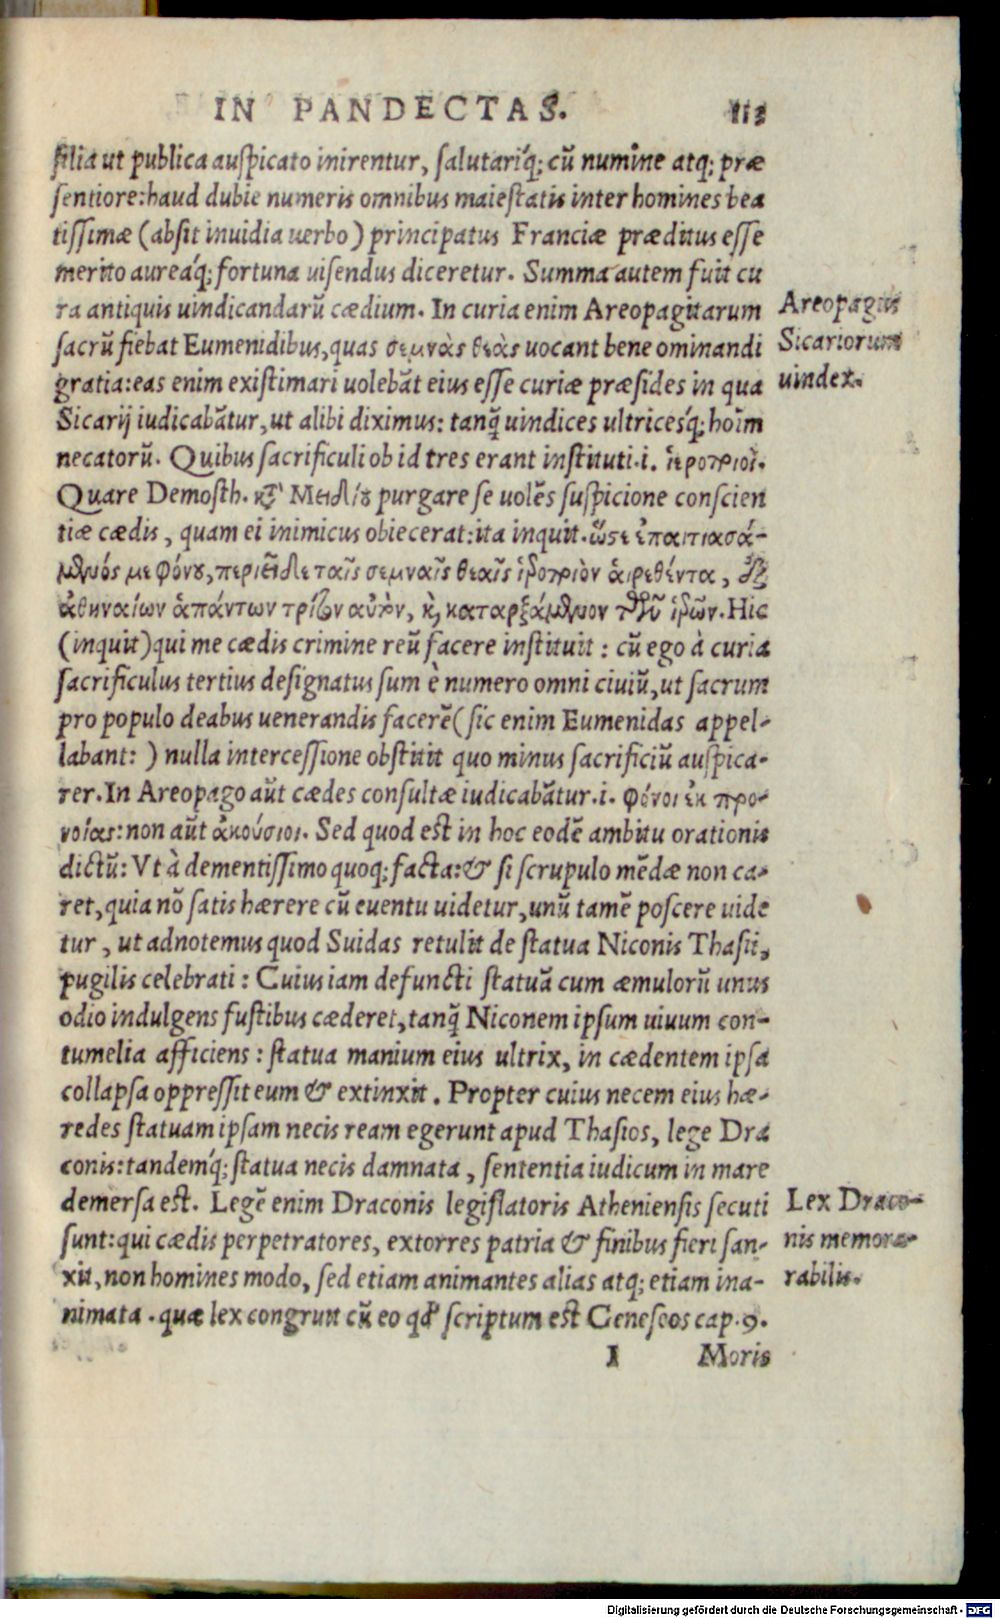 IN PANDECTAS. 113
silia ut publica auspicato inirentur, salutariq́; cũ numine atq; præ
sentiore: haud dubie numeris omnibus maiestatis inter homines bea
tissimæ (absit inuidia uerbo) principatus Franciæ præditus esse
merito aureaq́; fortuna uisendus diceretur. Summa autem fuit cu
ra antiquis uindicandarũ cædium. In curia enim Areopagitarum
sacrũ fiebat Eumenidibus, quas σεμνὰς θεὰς uocant bene ominandi
gratia: eas enim existimari uolebãt eius esse curiæ præsides in qua
Sicarij iudicabãtur, ut alibi diximus: tanq̃ uindices ultricesq́; hoĩm
necatorũ. Quibus sacrificuli ob id tres erant instituti .i. ἱεροποιοί.
Quare Demosth. κτ̃ Μειδίου purgare se uolẽs suspicione conscien
tiæ cædis, quam ei inimicus obiecerat: ita inquit. ὥστε ἐπαιτιασά-
μενός με φόνου, περιεῖδε ταῖς σεμναῖς θεαῖς ἱεροποιὸν αἱρεθέντα, ἐξ
ἀθηναίων ἁπάντων τρίτον αὐτὸν, κ̀ καταρξάμενον τῶν ἱερῶν. Hic
(inquit) qui me cædis crimine reũ facere instituit : cũ ego à curia
sacrificulus tertius designatus sum è numero omni ciuiũ, ut sacrum
pro populo deabus uenerandis facerẽ (sic enim Eumenidas appel-
labant: ) nulla intercessione obstitit quo minus sacrificiũ auspica-
rer. In Areopago aũt cædes consultæ iudicabãtur .i. φόνοι ἐκ προ-
νοίας: non aũt ἀκούσιοι. Sed quod est in hoc eodẽ ambitu orationis
dictũ: Vt à dementissimo quoq; facta: & si scrupulo mẽdæ non ca-
ret, quia nõ satis hærere cũ euentu uidetur, unũ tamẽ poscere uide
tur, ut adnotemus quod Suidas retulit de statua Niconis Thasii,
pugilis celebrati : Cuius iam defuncti statuã cum æmulorũ unus
odio indulgens fustibus cæderet, tanq̃ Niconem ipsum uiuum con-
tumelia afficiens : statua manium eius ultrix, in cædentem ipsa
collapsa oppressit eum & extinxit. Propter cuius necem eius hæ-
redes statuam ipsam necis ream egerunt apud Thasios, lege Dra
conis: tandemq́; statua necis damnata, sententia iudicum in mare
demersa est. Legẽ enim Draconis legislatoris Atheniensis secuti
sunt: qui cædis perpetratores, extorres patria & finibus fieri san-
xit, non homines modo, sed etiam animantes alias atq; etiam ina-
nimata. quæ lex congruit cũ eo qđ scriptum est Geneseos cap. 9.
I Moris
Areopagus
Sicariorum
uindex.
Lex Draco-
nis memora-
rabilis.
Digitalisierung gefördert durch die Deutsche Forschungsgemeinschaft - DFG